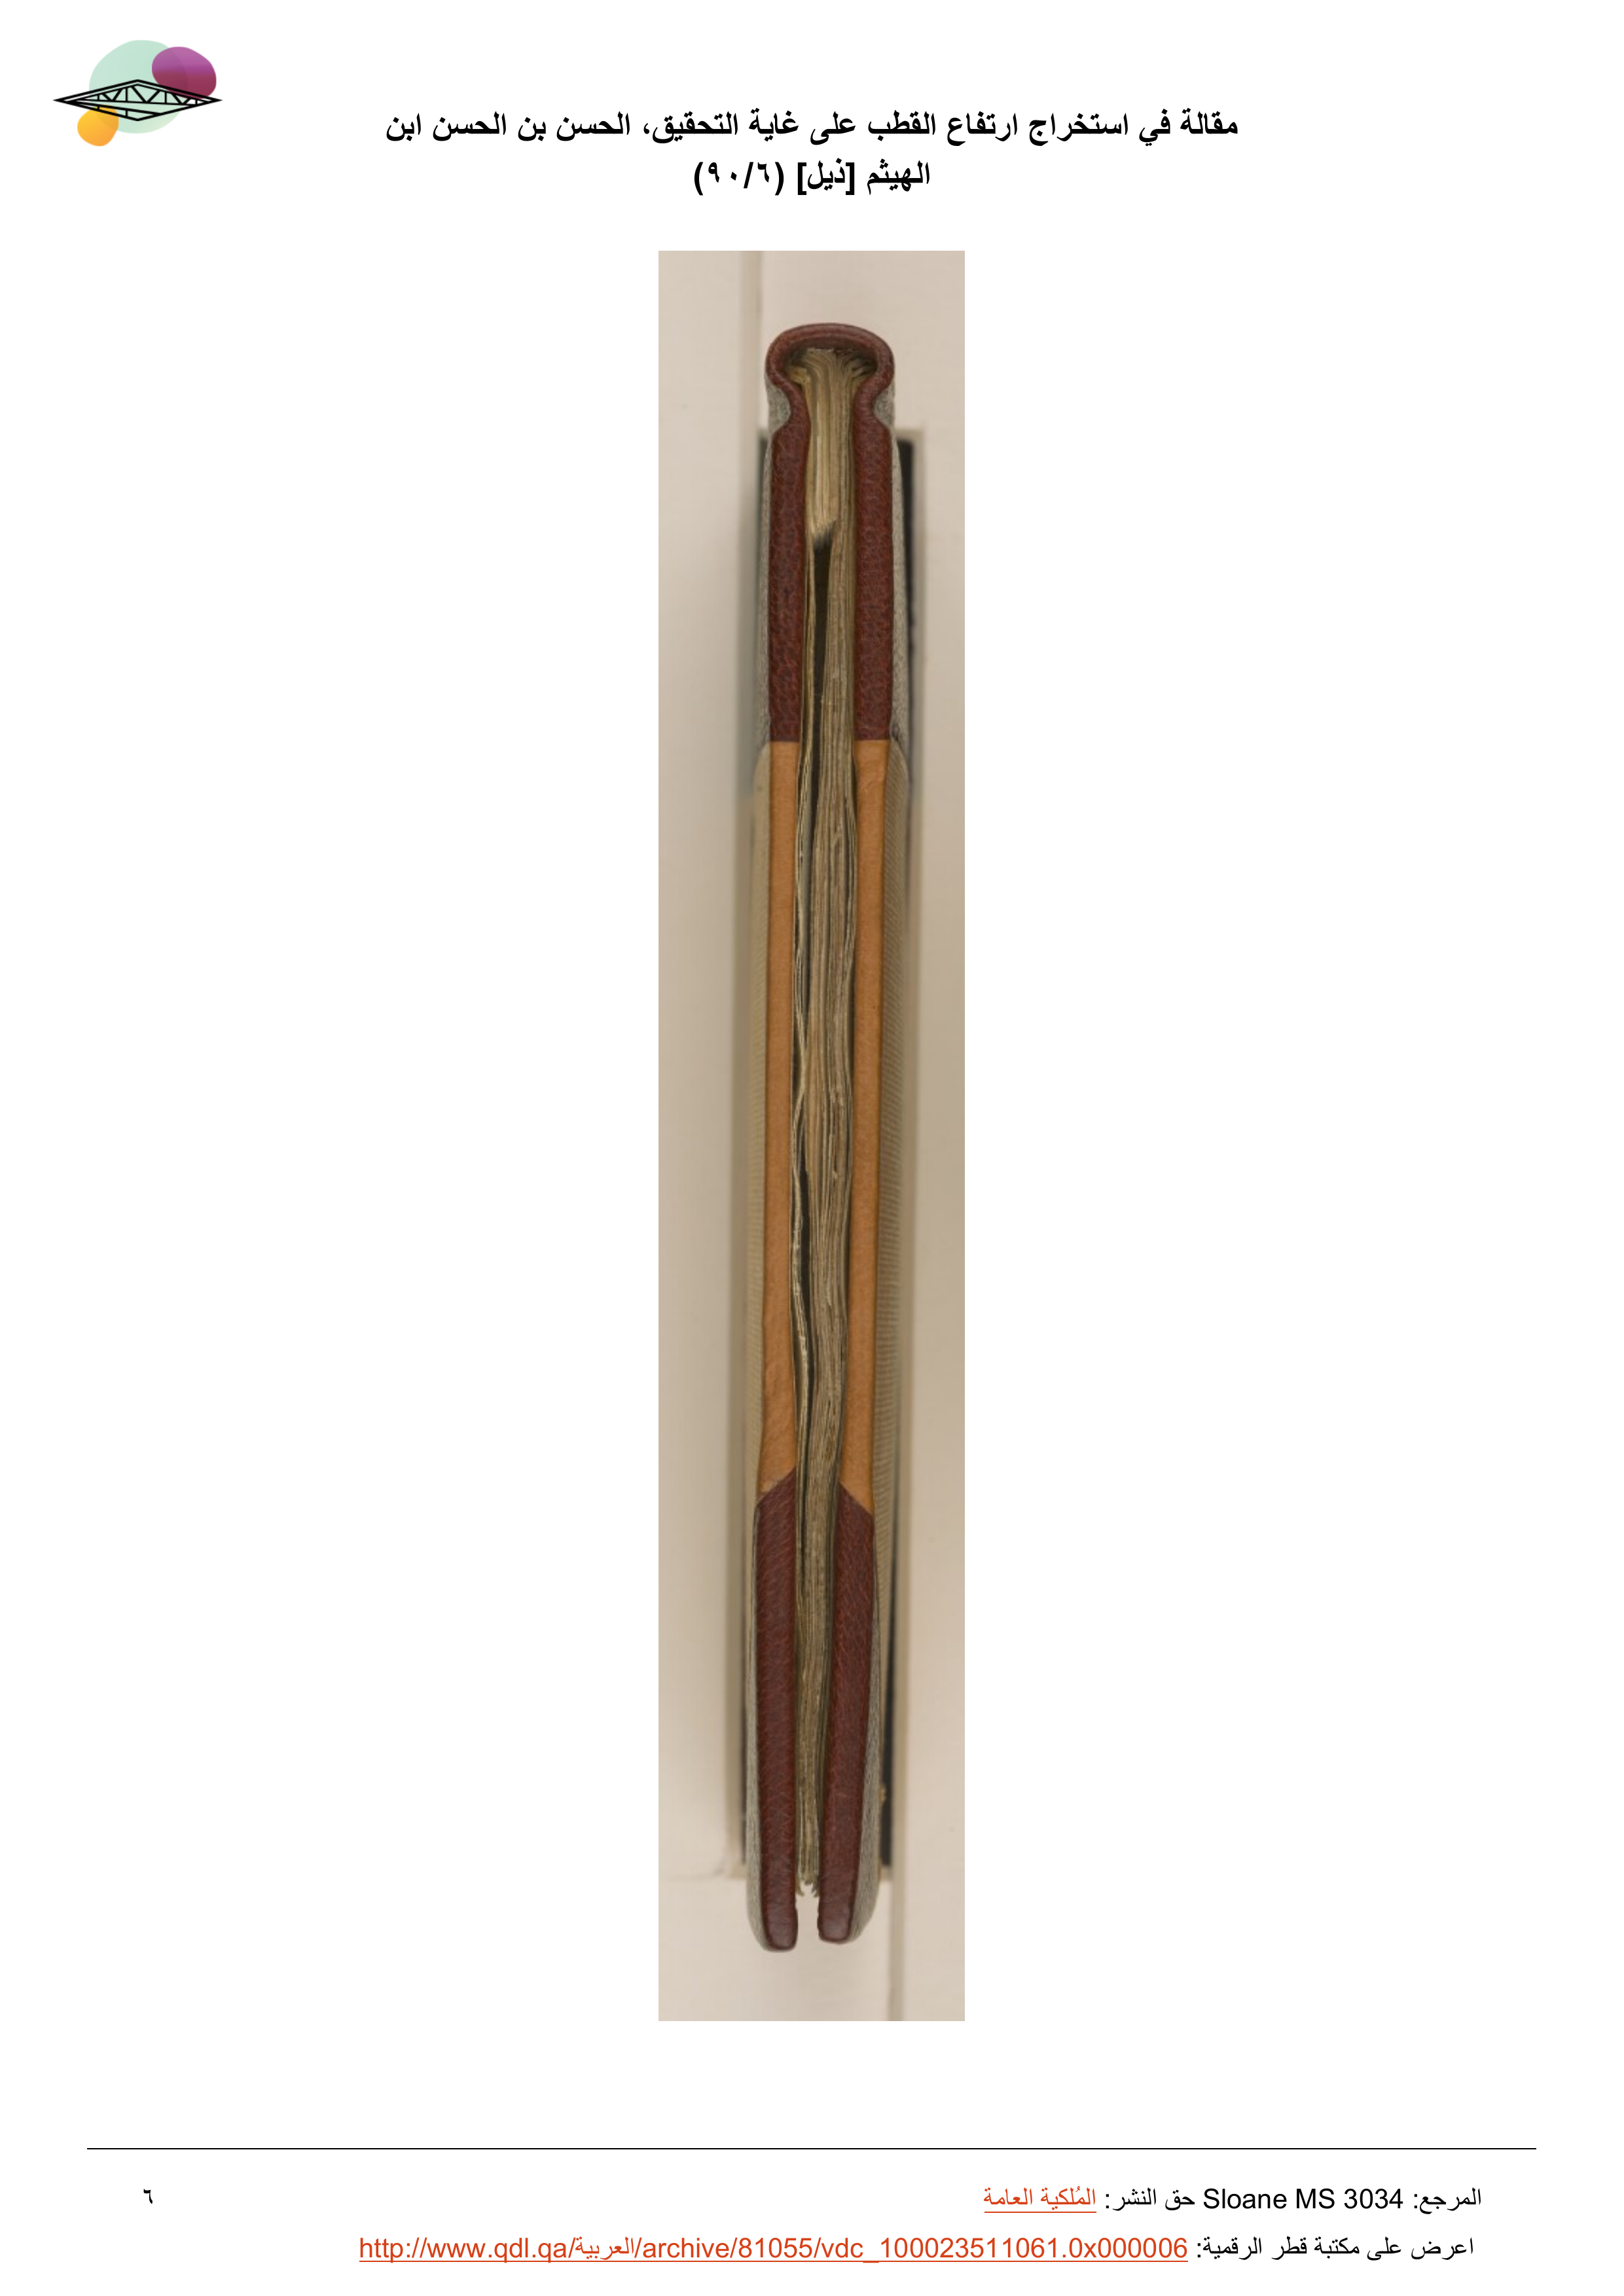 مقالة في استخراج ارتفاع القطب على غاية التحقيق، الحسن بن الحسن ابن
الهيثم [ذيل] (٩٠/٦)
المرجع: Sloane MS 3034 حق النشر: المُلكية العامة
٦
اعرض على مكتبة قطر الرقمية: http://www.qdl.qa/العربية/archive/81055/vdc_100023511061.0x000006